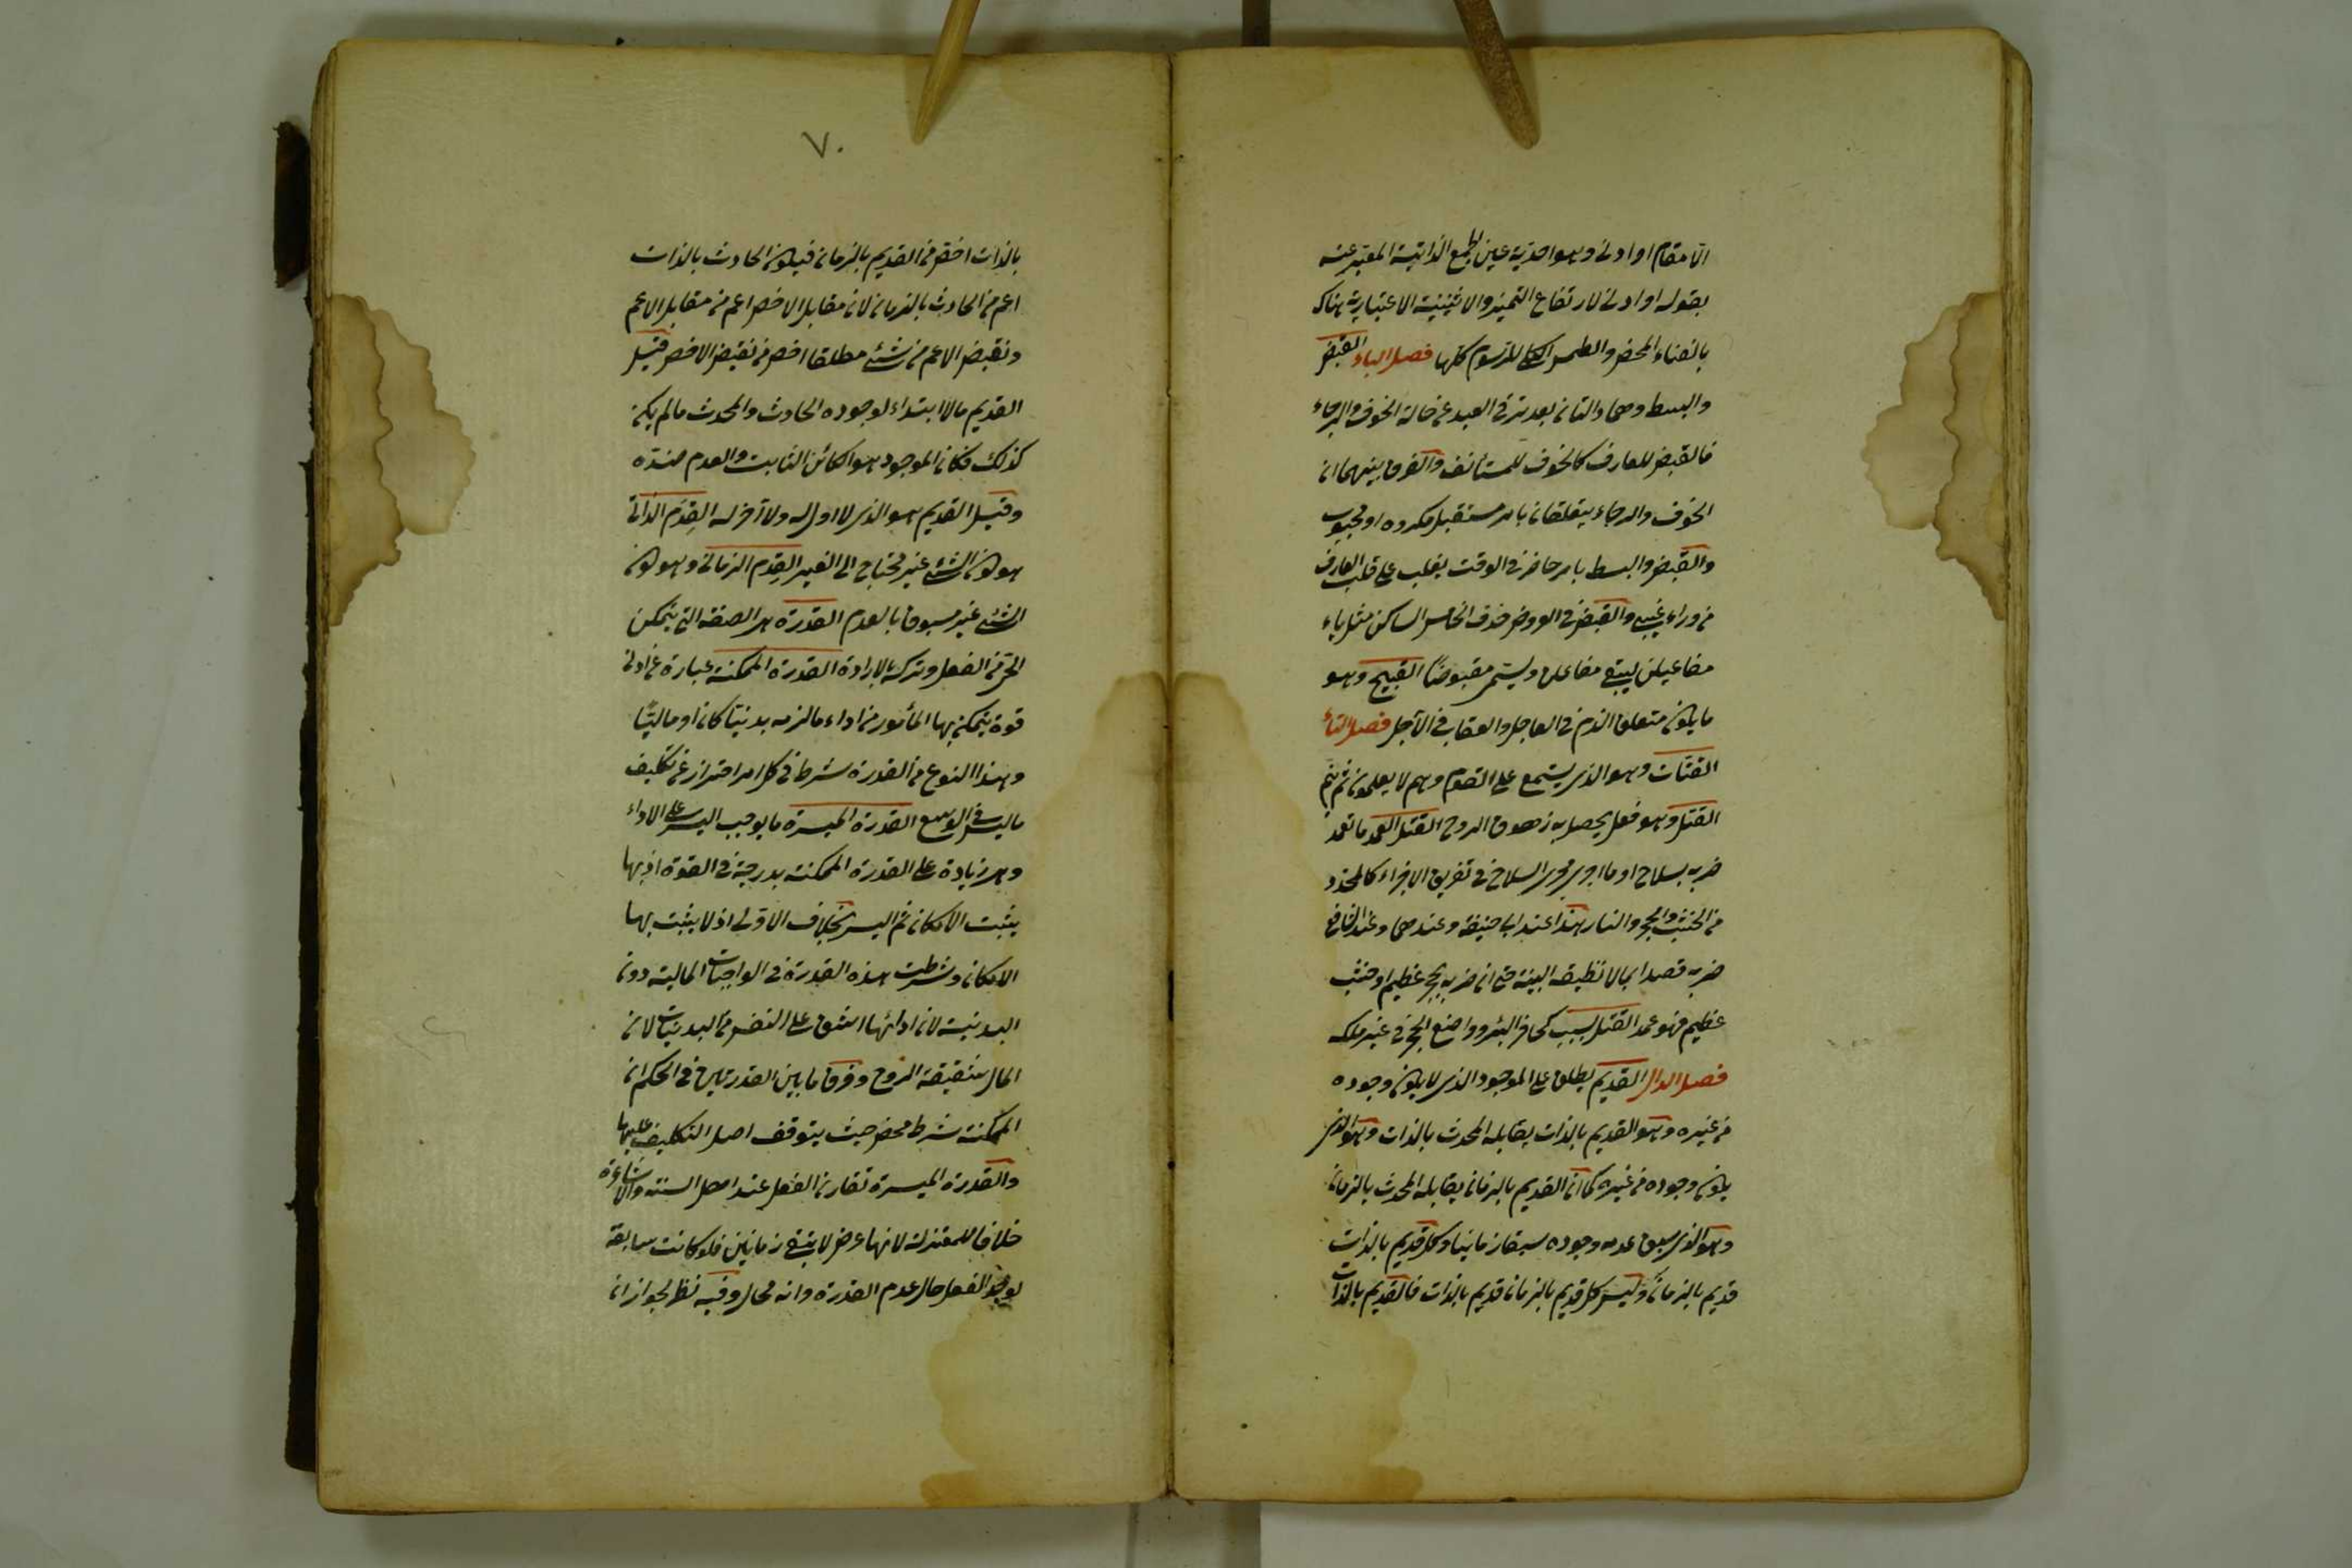 الا مقام او ادنى وهو احدية عين الجمع الذاتية المعبر عنه
بقوله او ادنى لارتفاع التميز والاثنينية الاعتبارية هناك
بالفناء المحض والطمس الكلى للرسوم كلها فصل الباء القبض
والبسط وهما حالتان بعد ترقى العبد عن حالة الخوف والرجاء
فالقبض للعارف كالخوف للمستأنف والفرق بينهما ان
الخوف والرجاء يتعلقان بامر مستقبل مكروه او محبوب
والقبض والبسط بامر حاضر فى الوقت يغلب على قلب العارف
من وارد غيبى والقبض فى العروض حذف الخامس الساكن مثل ياء
مفاعيلن ليبقى مفاعلن ويسمى مقبوضًا القبيح وهو
ما يكون متعلق الذم فى العاجل والعقاب فى الآجل فصل التاء
القتات وهو الذى يستمع على القوم وهم لا يعلمون ثم ينم
القتل وهو فعل يحصل به زهوق الروح القتل العمد ما تعمد
ضربه بسلاح او ما اجرى مجرى السلاح فى تفريق الاجزاء كالمحدد
من الخشب والحجر والنار هذا عند ابى حنيفة وعندهما وعند الشافعى
ضربه قصدا بما لا تطيقه البنية حتى ان ضربه بحجر عظيم او خشب
عظيم فهو عمد القتل بسبب كحافر البئر وواضع الحجر فى غير ملكه
فصل الدال القديم يطلق على الموجود الذى لا يكون وجوده
من غيره وهو القديم بالذات يقابله المحدث بالذات وهو الذى
يكون وجوده من غيره كما ان القديم بالزمان يقابله المحدث بالزمان
وهو الذى سبق عدمه وجوده سبقا زمانيا وكل قديم بالذات
قديم بالزمان وليس كل قديم بالزمان قديم بالذات فالقديم بالذات
٧٠
بالذات اخص من القديم بالزمان فيكون الحادث بالذات
اعم من الحادث بالزمان لان مقابل الاخص اعم من مقابل الاعم
ونقيض الاعم من شئ مطلقا اخص من نقيض الاخص قيل
القديم ما لا ابتداء لوجوده الحادث والمحدث ما لم يكن
كذلك فكان الموجود هو الكائن الثابت والعدم ضده
وقيل القديم هو الذى لا اول له ولا آخر له القِدَم الذاتى
هو كون الشئ غير محتاج الى الغير القِدَم الزمانى وهو كون
الشئ غير مسبوق بالعدم القدرة هى الصفة التى يتمكن
الحى من الفعل وتركه بالارادة القدرة الممكنة عبارة عن ادنى
قوة يتمكن بها المأمور من اداء ما لزمه بدنيًا كان او ماليًا
وهذا النوع من القدرة شرط فى كل امر احترازا عن تكليف
ما ليس فى الوسع القدرة الميسرة ما يوجب اليسر على الاداء
وهى زيادة على القدرة الممكنة بدرجة فى القوة اذ بها
يثبت الامكان ثم اليسر بخلاف الاولى اذ لا يثبت بها
الامكان وشرطت هذه القدرة فى الواجبات المالية دون
البدنية لان ادائها اشق على النفس من البدنيات لان
المال شقيقة الروح وفرق ما بين القدرتين فى الحكم ان
الممكنة شرط محض حيث يتوقف اصل التكليف عليها
والقدرة الميسرة تقارن الفعل عند اهل السنة والاشاعرة
خلافا للمعتزلة لانها عرض لا يبقى زمانين فلو كانت سابقة
لوجد الفعل حال عدم القدرة وانه محال وفيه نظر لجواز ان